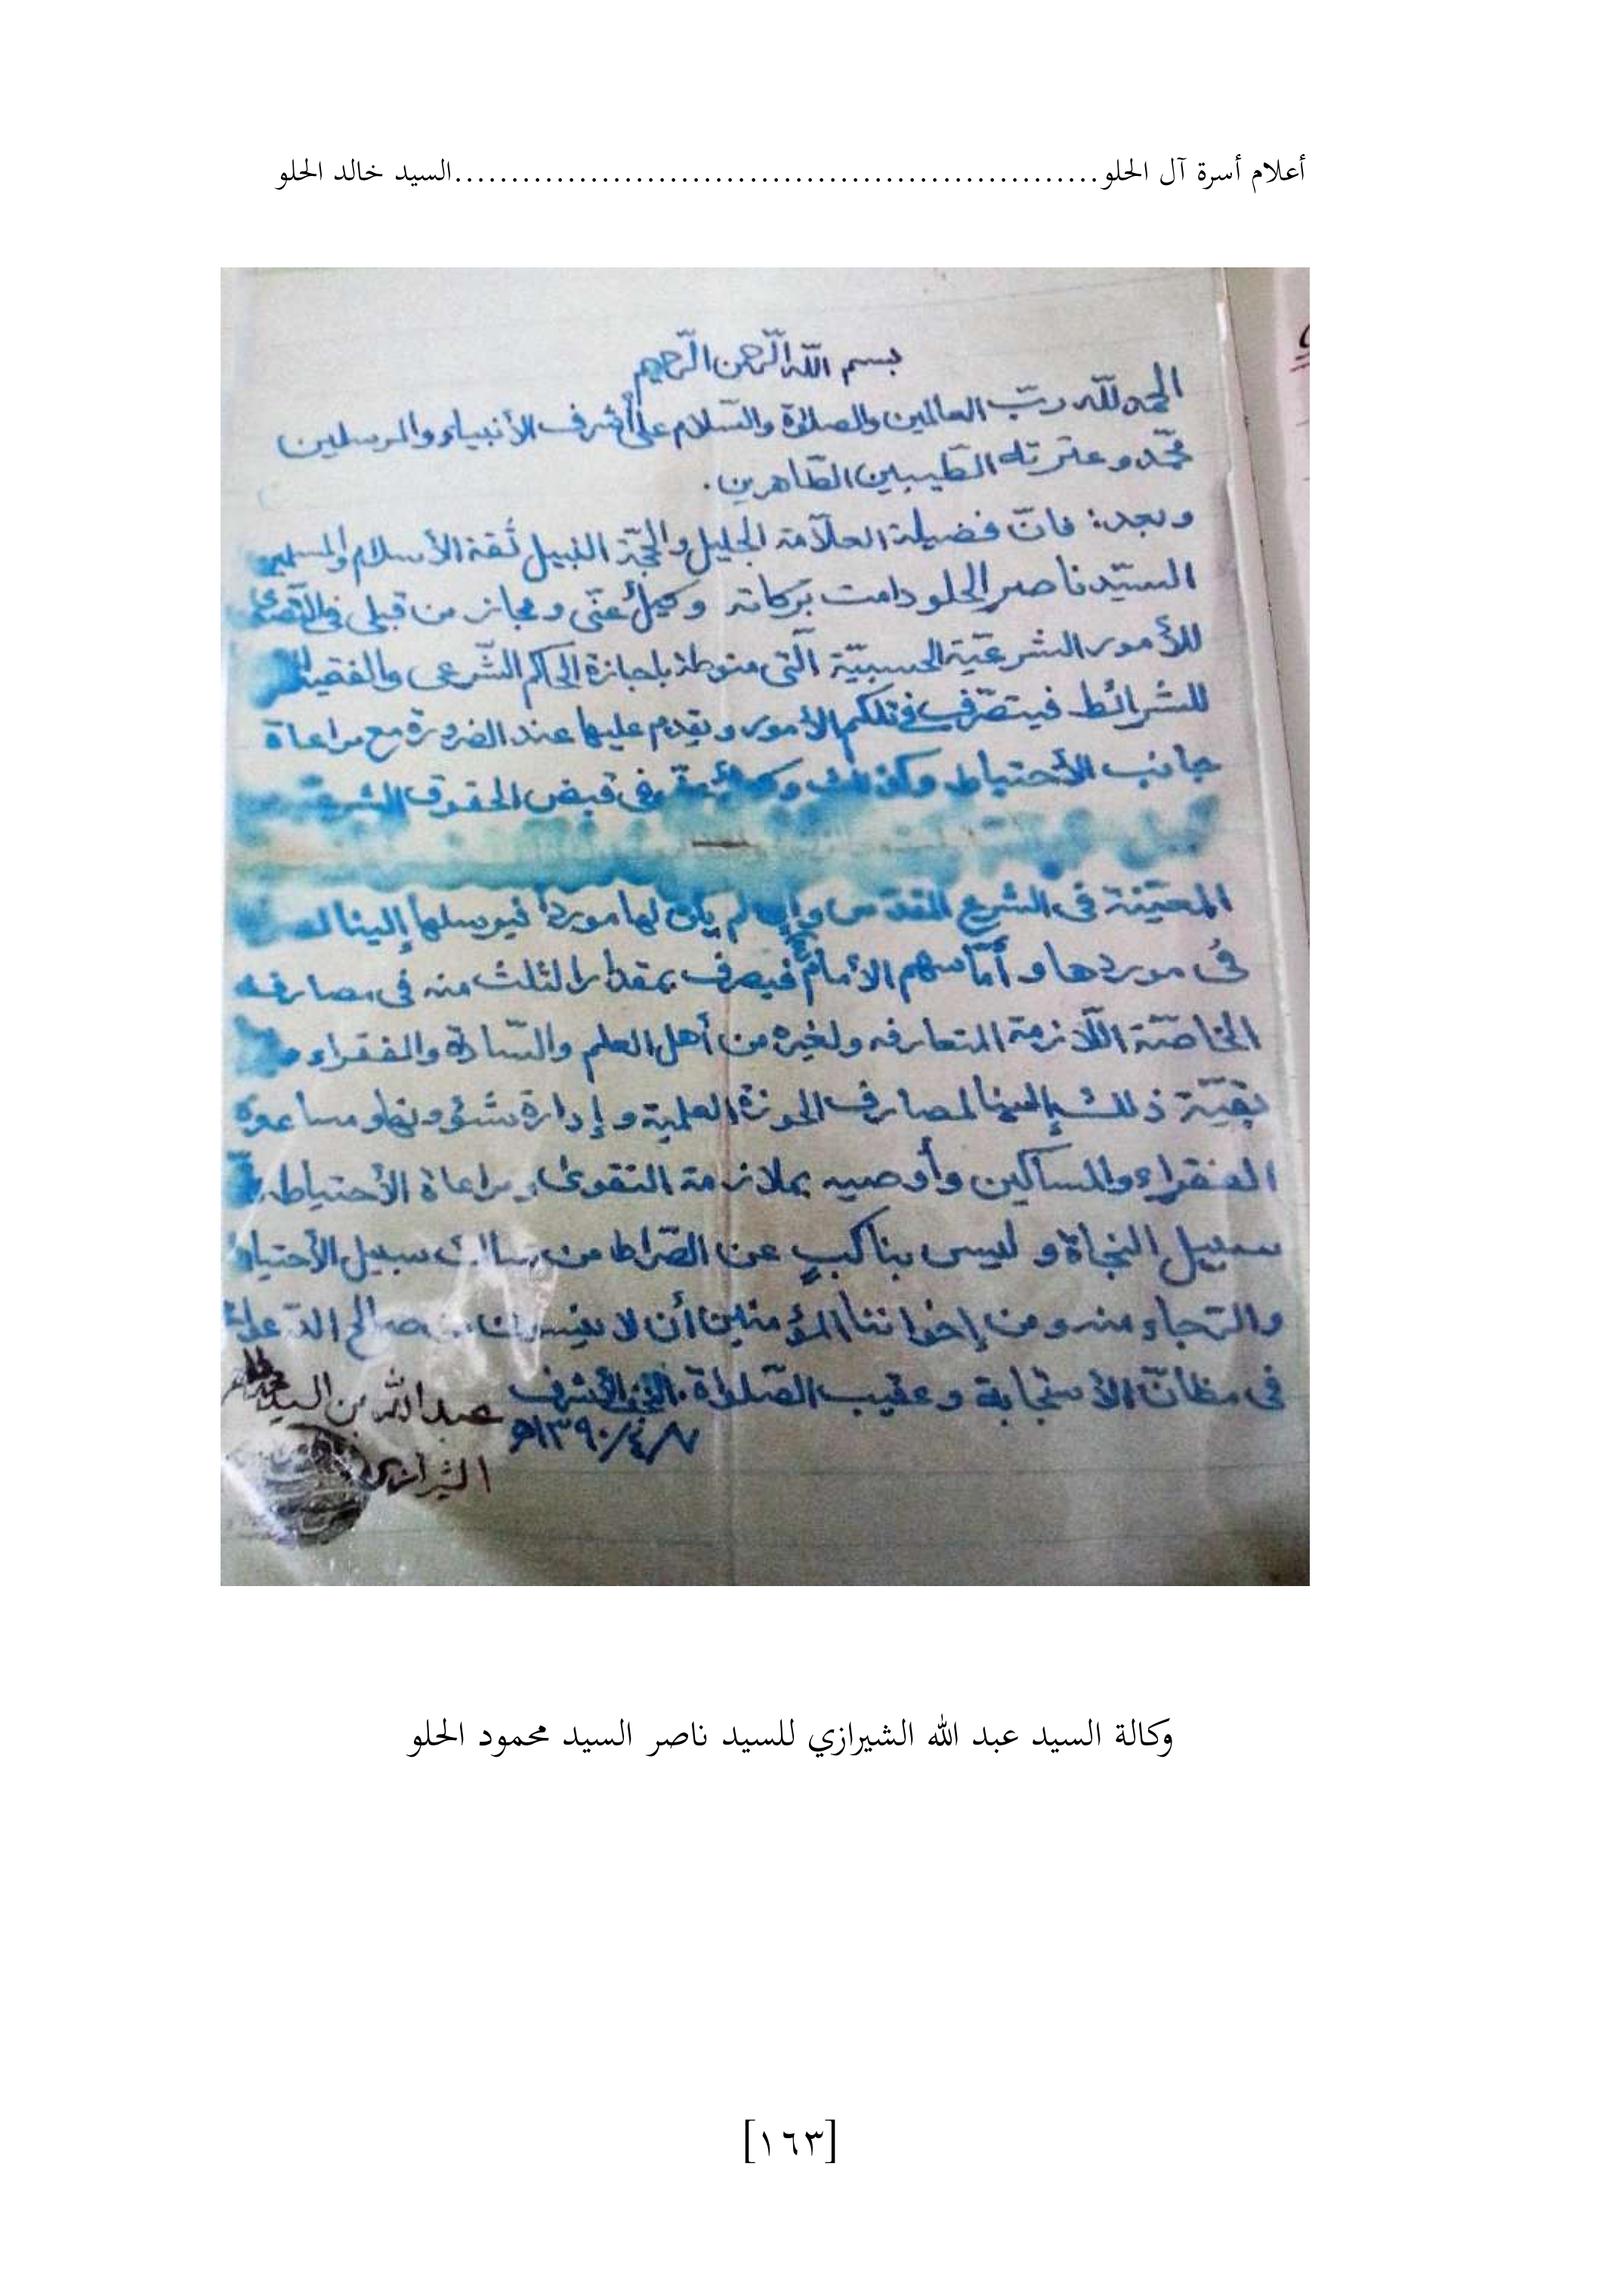 أعلام أسرة آل الحلو.........................................................السيد خالد الحلو
بسم اللّه الرّحمن الرّحيم
الحمد للّه ربّ العالمين والصلاة والسّلام على أشرف الأنبياء والمرسلين
محمّد وعترته الطّيبين الطّاهرين.
وبعد: فانّ فضيلة العلاّمة الجليل والحجّة النبيل ثقة الأسلام والمسلمين
السيّد ناصر الحلو دامت بركاته وكيلٌ عنّى ومجاز من قبلى في التصدّى
للأمور الشرعيّة الحسبيّة الّتى منوطة باجازة الحاكم الشّرعى والفقيه
للشرائط فيتصّرف في تلكم الأمور ويقدم عليها عند الضرورة مع مراعاة
جانب الأحتياط وكذلك في قبض الحقوق الشرعيّة
المعيّنة فى الشرع المقدس وإن لم يكن لها مورداً فيرسلها إلينا
فى موردها و أمّا سهم الأمام فيصرف بمقدار الثلث منه فى مصارفه
الخاصّة اللّازمة المتعارفه ولغيره من أهل العلم والسّادة والفقراء
بقيّة ذلك إلينا لمصارف الحوزة العلمية و إدارة شؤونها ومساعدة
الفقراء والمساكين وأوصيه بملازمة التقوى ومراعاة الأحتياط
سبيل النجاة و ليس بناكبٍ عن الصّراط من سالك سبيل الأحتياط
والرّجاء منه ومن إخواننا المؤمنين أن لا ينسون من صالح الدّعاء
فى مظانّ الأستجابة وعقيب الصّلواة. النجف الأشرف
١٣٩٠/٤/٨هـ
عبد الله بن السيد
الشيرازي
وكالة السيد عبد الله الشيرازي للسيد ناصر السيد محمود الحلو
[١٦٣]